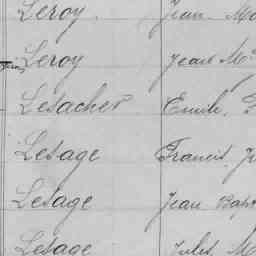 Leroy. Jean. Ma
Leroy Jean M
Lesacher Emile,
Lesage Francis J
Lesage Jean Bapt
Lesage Jules, M